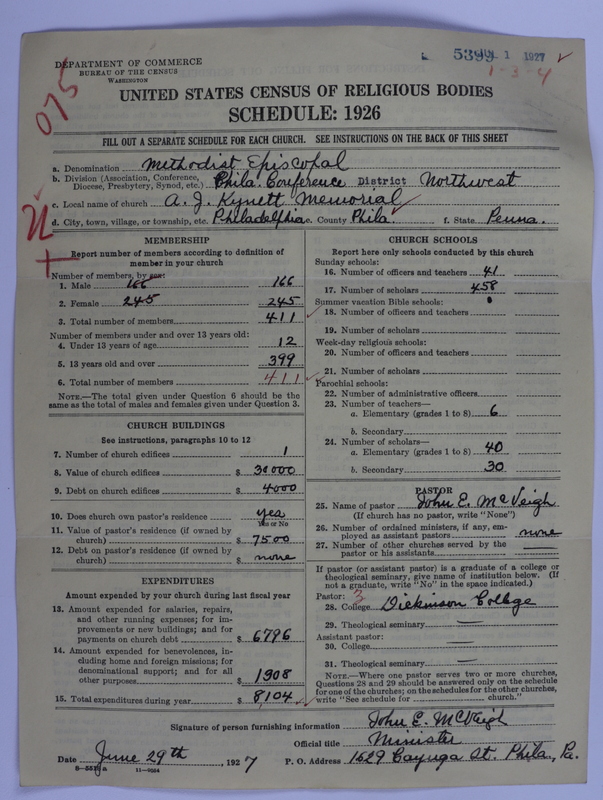 DEPARTMENT OF COMMERCE
BUREAU OF THE CENSUS
WASHINGTON
1927
1-3-4
075
UNITED STATES CENSUS OF RELIGIOUS BODIES
SCHEDULE: 1926
FILL OUT A SEPARATE SCHEDULE FOR EACH CHURCH. SEE INSTRUCTIONS ON THE BACK OF THIS SHEET
a. Denomination Methodist Episcopal
b. Division (Association, Conference, Diocese, Presbytery, Synod, etc.) Phila. Conference District Northwest
c. Local name of church A. J. Kynett Memorial
d. City, town, village, or township, etc. Philadelphia e. County Phila. f. State Penna.
MEMBERSHIP
Report number of members according to definition of member in your church
Number of members, by sex:
1. Male 166 166
2. Female 245 245
3. Total number of members 411
Number of members under and over 13 years old:
4. Under 13 years of age 12
5. 13 years old and over 399
6. Total number of members 411
NOTE.—The total given under Question 6 should be the same as the total of males and females given under Question 3.
CHURCH BUILDINGS
See instructions, paragraphs 10 to 12
7. Number of church edifices 1
8. Value of church edifices $ 30000
9. Debt on church edifices $ 4000
10. Does church own pastor's residence yes
Yes or No
11. Value of pastor's residence (if owned by church) $ 7500
12. Debt on pastor's residence (if owned by church) $ none
EXPENDITURES
Amount expended by your church during last fiscal year
13. Amount expended for salaries, repairs, and other running expenses; for improvements or new buildings; and for payments on church debt $ 6796
14. Amount expended for benevolences, including home and foreign missions; for denominational support; and for all other purposes $ 1308
15. Total expenditures during year $ 8,104
CHURCH SCHOOLS
Report here only schools conducted by this church
Sunday schools:
16. Number of officers and teachers 41
17. Number of scholars 458
Summer vacation Bible schools:
18. Number of officers and teachers
19. Number of scholars
Week-day religious schools:
20. Number of officers and teachers
21. Number of scholars
Parochial schools:
22. Number of administrative officers
23. Number of teachers—
a. Elementary (grades 1 to 8) 6
b. Secondary
24. Number of scholars—
a. Elementary (grades 1 to 8) 40
b. Secondary 30
PASTOR
25. Name of pastor John E. McVeigh
(If church has no pastor, write "None")
26. Number of ordained ministers, if any, employed as assistant pastors none
27. Number of other churches served by the pastor or his assistants —
If pastor (or assistant pastor) is a graduate of a college or theological seminary, give name of institution below. (If not a graduate, write "No" in the space indicated.)
Pastor: 3
28. College Dickinson College
29. Theological seminary —
Assistant pastor:
30. College —
31. Theological seminary —
NOTE.—Where one pastor serves two or more churches, Questions 28 and 29 should be answered only on the schedule for one of the churches; on the schedules for the other churches, write "See schedule for ______ church."
Signature of person furnishing information John E. McVeigh
Official title Minister
Date June 29th, 1927 P. O. Address 1629 Cayuga St. Phila., Pa.